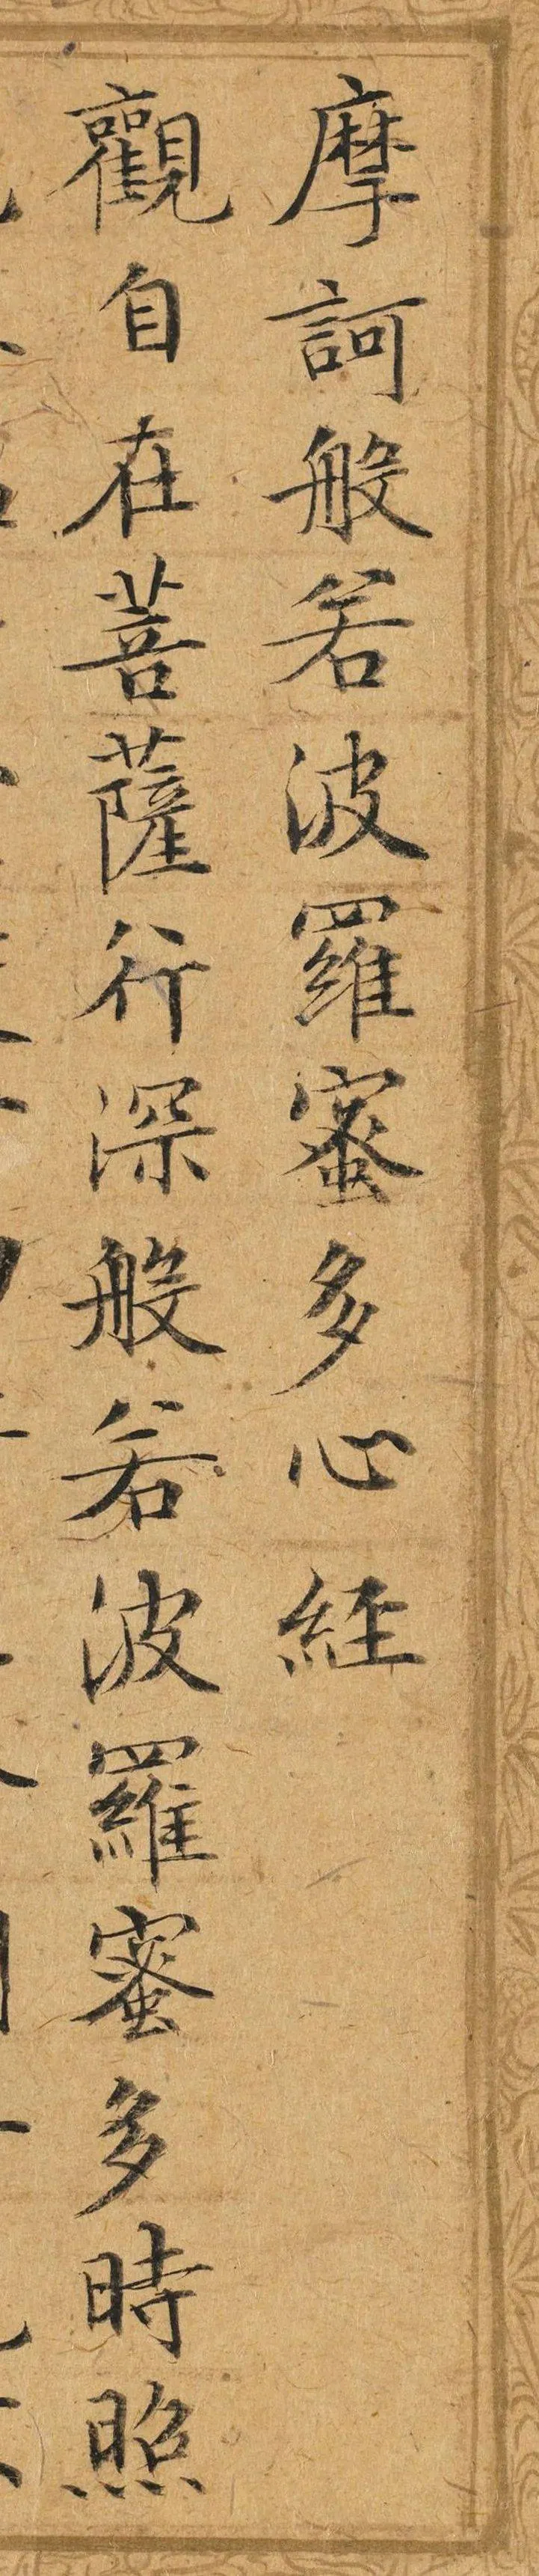 摩訶般若波羅蜜多心経
觀自在菩薩行深般若波羅蜜多時照